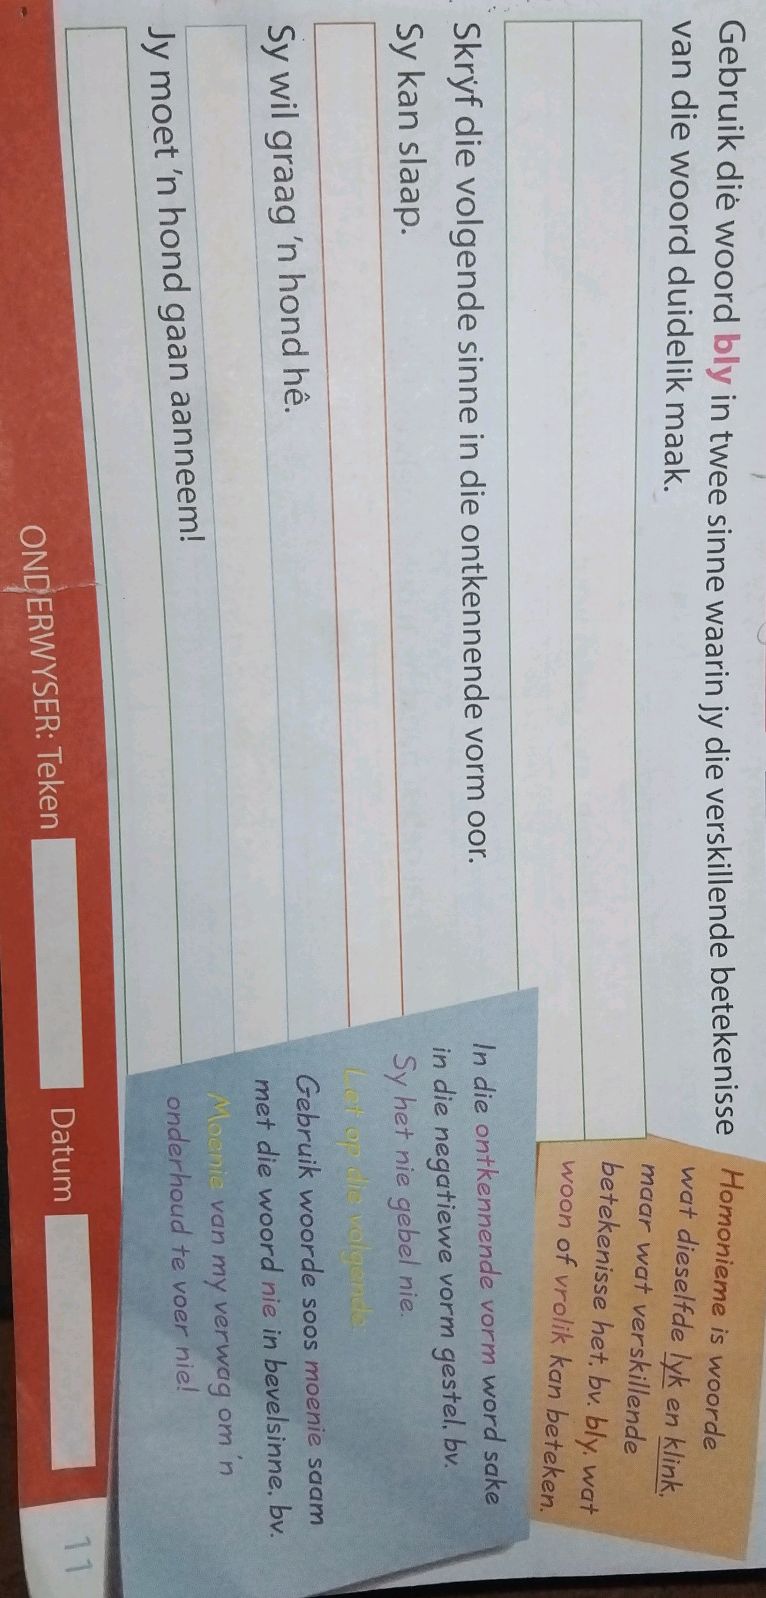 Gebruik die woord bly in twee sinne waarin jy die verskillende betekenisse
van die woord duidelik maak.
Homonieme is woorde
wat dieselfde lyk en klink,
maar wat verskillende
betekenisse het, bv. bly, wat
woon of vrolik kan beteken.
Skryf die volgende sinne in die ontkennende vorm oor.
Sy kan slaap.
Sy wil graag 'n hond hê.
Jy moet 'n hond gaan aanneem!
In die ontkennende vorm word sake
in die negatiewe vorm gestel, bv.
Sy het nie gebel nie.
Let op die volgende:
Gebruik woorde soos moenie saam
met die woord nie in bevelsinne, bv.
Moenie van my verwag om 'n
onderhoud te voer nie!
ONDERWYSER: Teken Datum
11